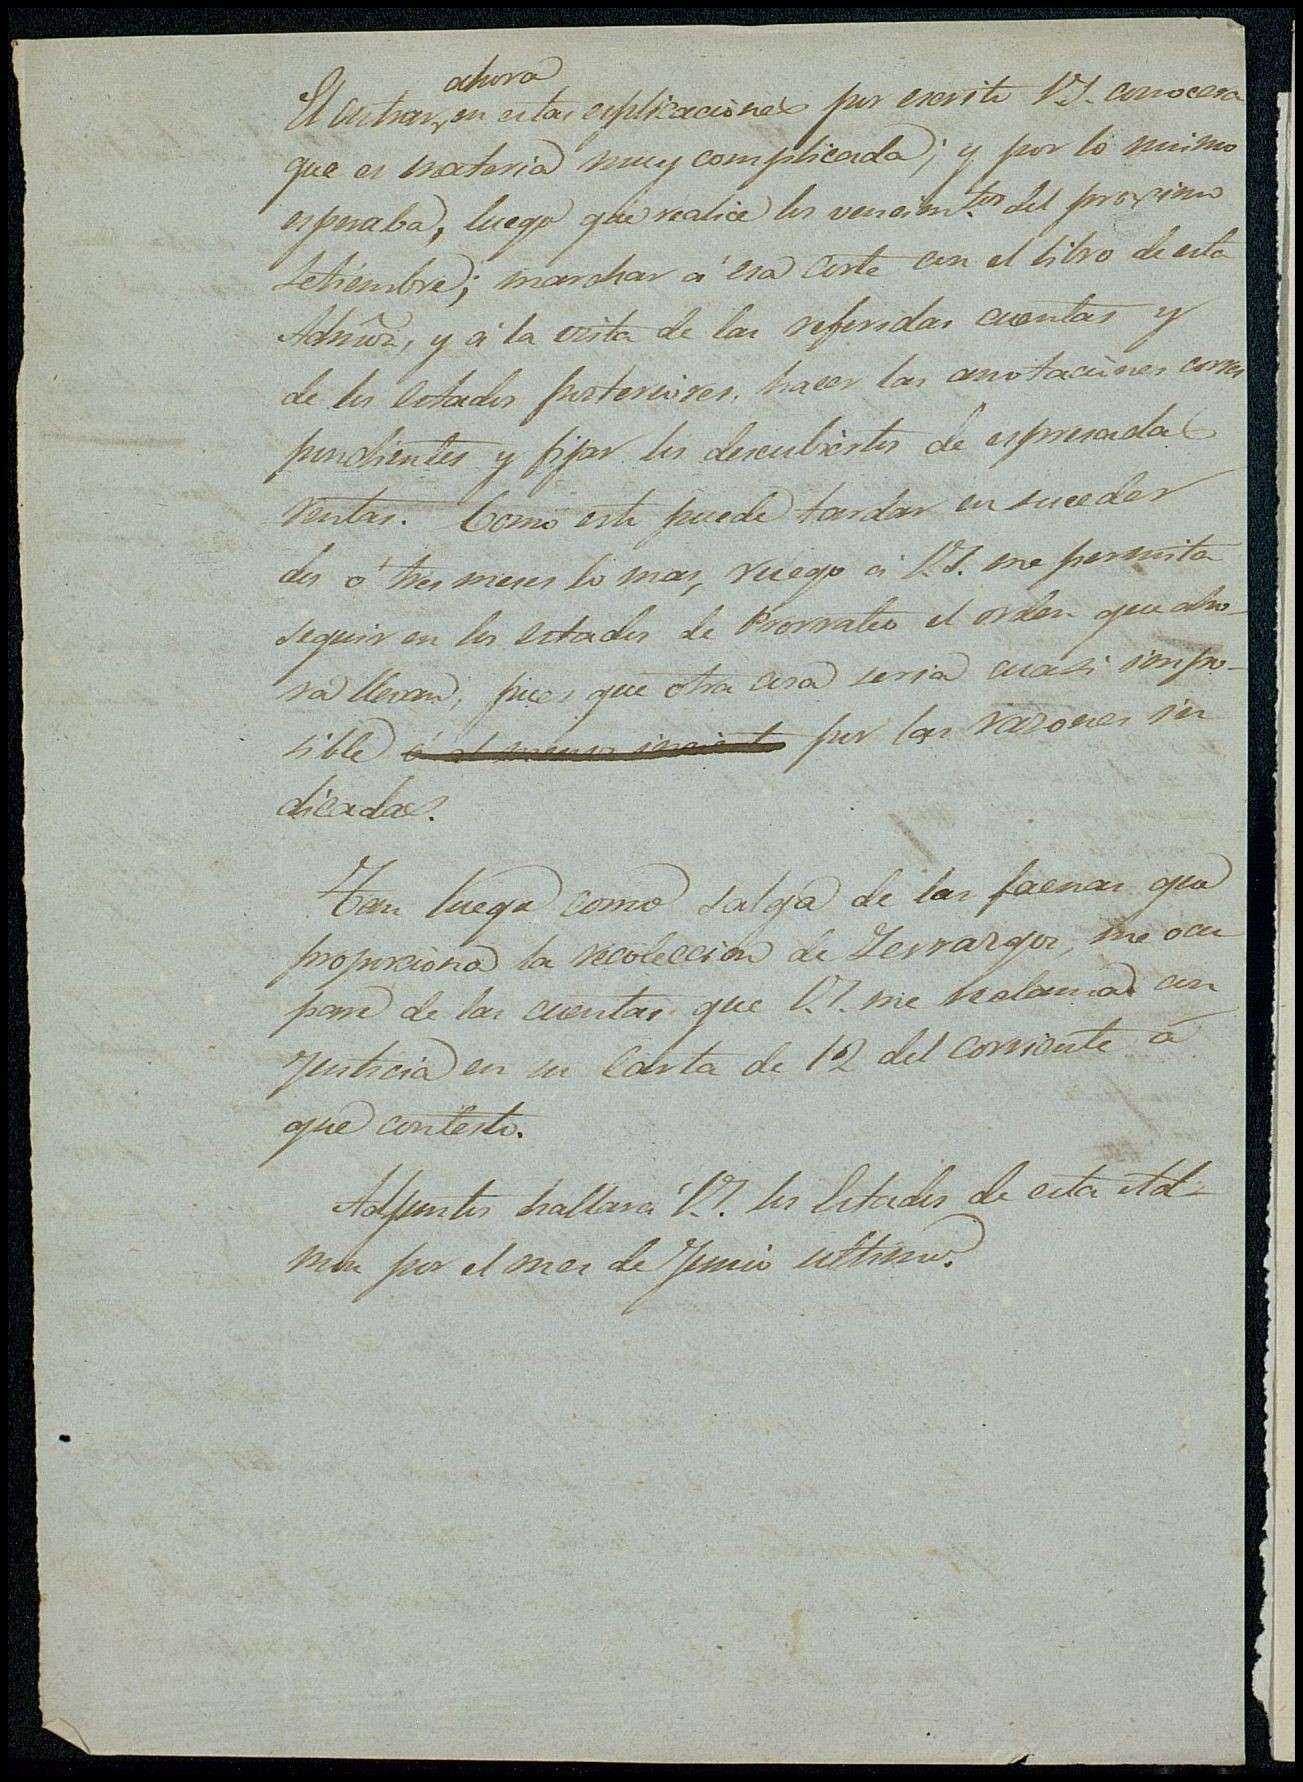 ahora
El entrar en estas esplicaciones por escrito V.S. conocera
que es materia muy complicada; y por lo mismo
esperaba, luego que realice los vencim.tos del proximo
Setiembre; marchar á esa Corte con el libro de esta
Admon, y á la vista de las referidas cuentas y
de los Estados posteriores, hacer las anotaciones corres
pondientes y fijar los descubiertos de espresadas
rentas. Como esto puede tardar en suceder
dos ó tres meses lo mas, ruego á V.S. me permita
seguir en los estados de Prorrateo el orden que aho-
ra llevan; pues que otra cosa seria cuasi impo-
sible ó al menos por las razones in
dicadas.
Tan luego como salga de las faenas que
proporciona la recoleccion de Terrazgos, me ocu
pare de las cuentas que V.S. me reclama con
Justicia en su Carta de 12 del corriente á
que contesto.
Adjuntos hallará V.S. los Estados de esta Ad-
mon por el mes de Junio ultimo.